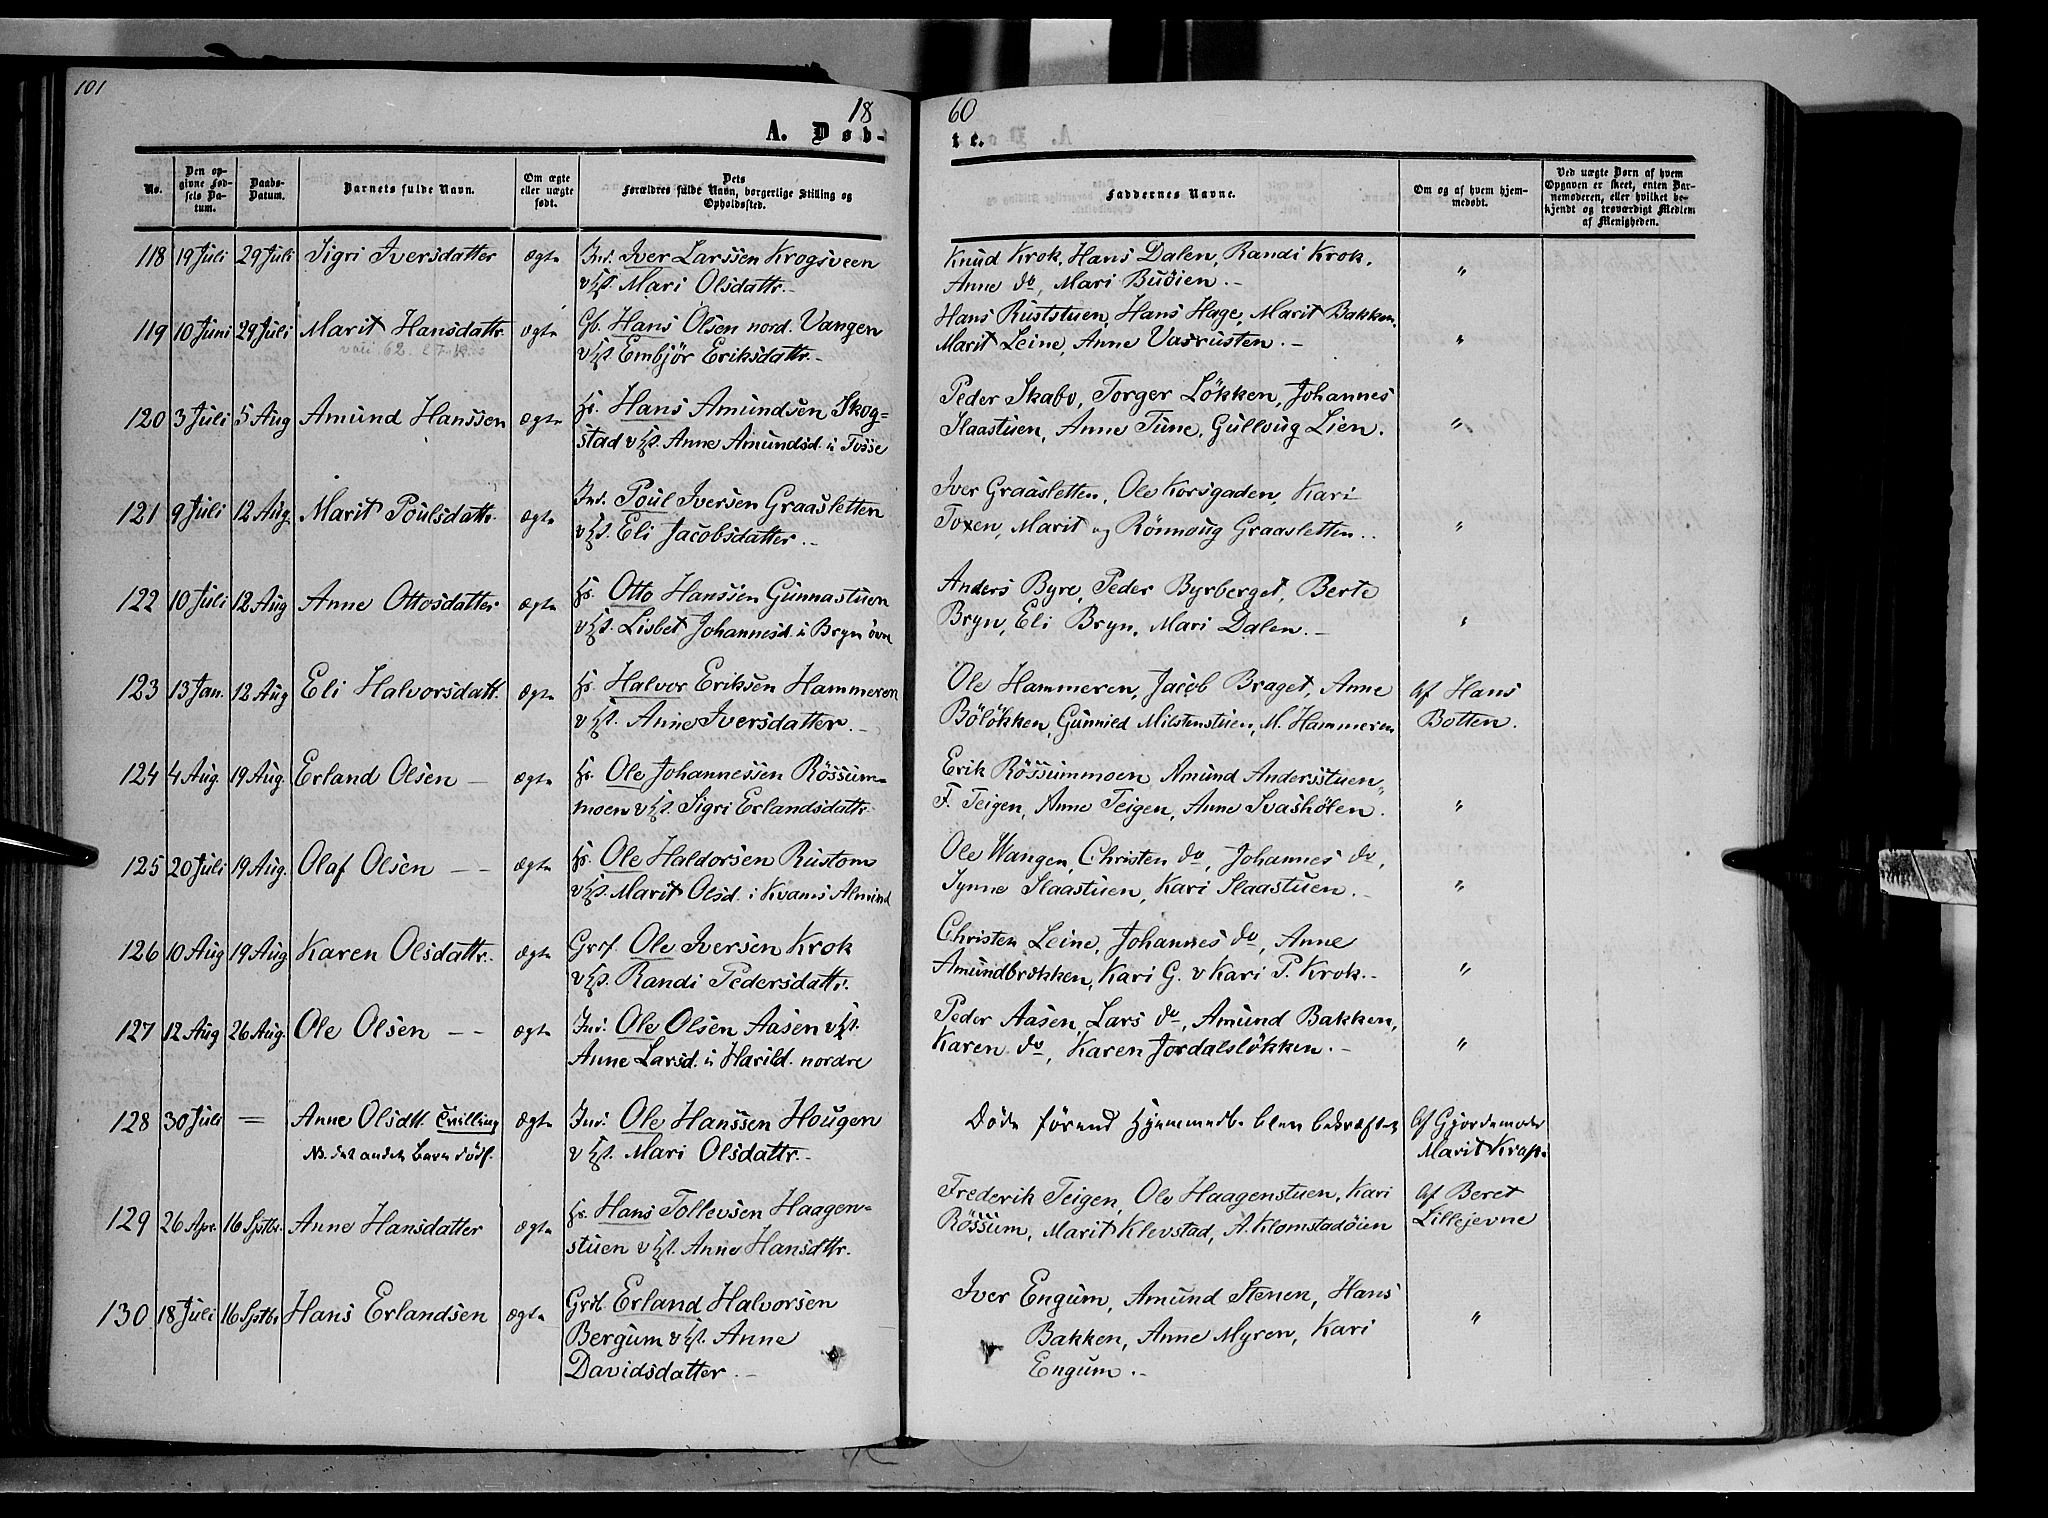 101
18
60
A. Døb-
te.
No.
Den op-
givne Fød-
sels Da-
tum.
Daabs-
Datum.
Barnets fulde Navn.
Om ægte
eller uægte
født.
Dets
Forældres fulde Navn, borgerlige Stilling og
Opholdssted.
Faddernes Navne.
Om og af hvem hjem-
medøbt.
Ved uægte Børn af hvem
Opgaven er skeet, enten Bar-
nemoderen, eller hvilket be-
kjendt og troværdigt Medlem
af Menigheden.
118 19 Juli 29 Juli Sigri Iversdatter ægte Ind. Iver Larssen Krogsveen
v Hst. Mari Olsdattr.-
Knud Krok, Hans Dalen, Randi Krok,
Anne do, Mari Buöien.- "
119 10 Juni 29 Juli Marit Hansdattr. ægte Gb. Hans Olsen nord. Vangen
v Hst. Embjör Eriksdattr.-
Hans Ruststuen, Hans Hage, Marit Bakken,
Marit Leine, Anne Vasrusten.- "
120 3 Juli 5 Aug Amund Hanssen ægte Hs. Hans Amundsen Skog-
stad v Hst. Anne Amundsd. i Tosse
Peder Skabo, Torger Lökken, Johannes
Slaastuen, Anne Tune, Gullvug Lien. "
121 9 Juli 12 Aug. Marit Poulsdattr. ægte Ind. Poul Iversen Graasletten
v Hst. Eli Jacobsdatter.-
Iver Graasletten, Ole Korsgaden, Kari
Toxen, Marit og Rönnoug Graasletten.. "
122 10 Juli 12 Aug Anne Ottosdatter ægte Hs. Otto Hanssen Gunnastuen
v Hst. Lisbet Johannesd. i Bryn övre
Anders Byre, Peder Byrberget, Berte
Bryn, Eli Bryn, Mari Dalen.- "
123 13 Jan. 12 Aug Eli Halvorsdatt. ægte Hs. Halvor Eriksen Hammeren
v Hst. Anne Iversdatter.-
Ole Hammeren, Jacob Braget, Anne af Hans
Bölökken, Gunnied Milstenstuen, M. Hammeren Botten.
124 4 Aug. 19 Aug. Erland Olsen - ægte Hs. Ole Johannessen Rössum-
moen v Hst. Sigri Erlandsdattr.
Erik Rössummoen, Amund Andersstuen,
F. Teigen, Anne Teigen, Anne Svashölen. "
125 20 Juli 19 Aug. Olaf Olsen - - ægte Hs. Ole Haldorsen Rustom
v Hst. Marit Olsd. i Kvams Almind
Ole Wangen, Christen do, Johannes do,
Synne Slaastuen, Kari Slaastuen.- "
126 10 Aug 19 Aug Karen Olsdattr. ægte Grsf. Ole Iversen Krok
v Hst. Randi Pedersdattr.
Christen Leine, Johannes do, Anne
Amundbrækken, Kari G. v Kari P. Krok.- "
127 12 Aug 26 Aug. Ole Olsen - - ægte Ind. Ole Olsen Aasen v Hst.
Anne Larsd. i Harild. nordre
Peder Aasen, Lars do, Amund Bakken,
Karen do, Karen Jordalslökken.- "
128 30 Juli = Anne Olsdtt. Tvilling ægte Ind. Ole Hanssen Hougen
NB. det andet Barn dödf. v Hst. Mari Olsdattr.-
Döde förend Hjemmedb. blev bekræftet af Gjordemoder
Marit Krap.
129 26 Apr. 16 Sptbr. Anne Hansdatter ægte Hs. Hans Tollevsen Haagen-
stuen v Hst. Anne Hansdttr.
Frederik Teigen, Ole Haagenstuen, Kari af Beret
Rössum, Marit Klevstad, A. Klomstadöien Lillejevne
130. 18 Juli 16 Sptbr Hans Erlandsen ægte Grb. Erland Halvorsen
Bergum v Hst. Anne
Davidsdatter.-
Iver Engum, Amund Stenen, Hans
Bakken, Anne Myren, Kari "
Engum.-